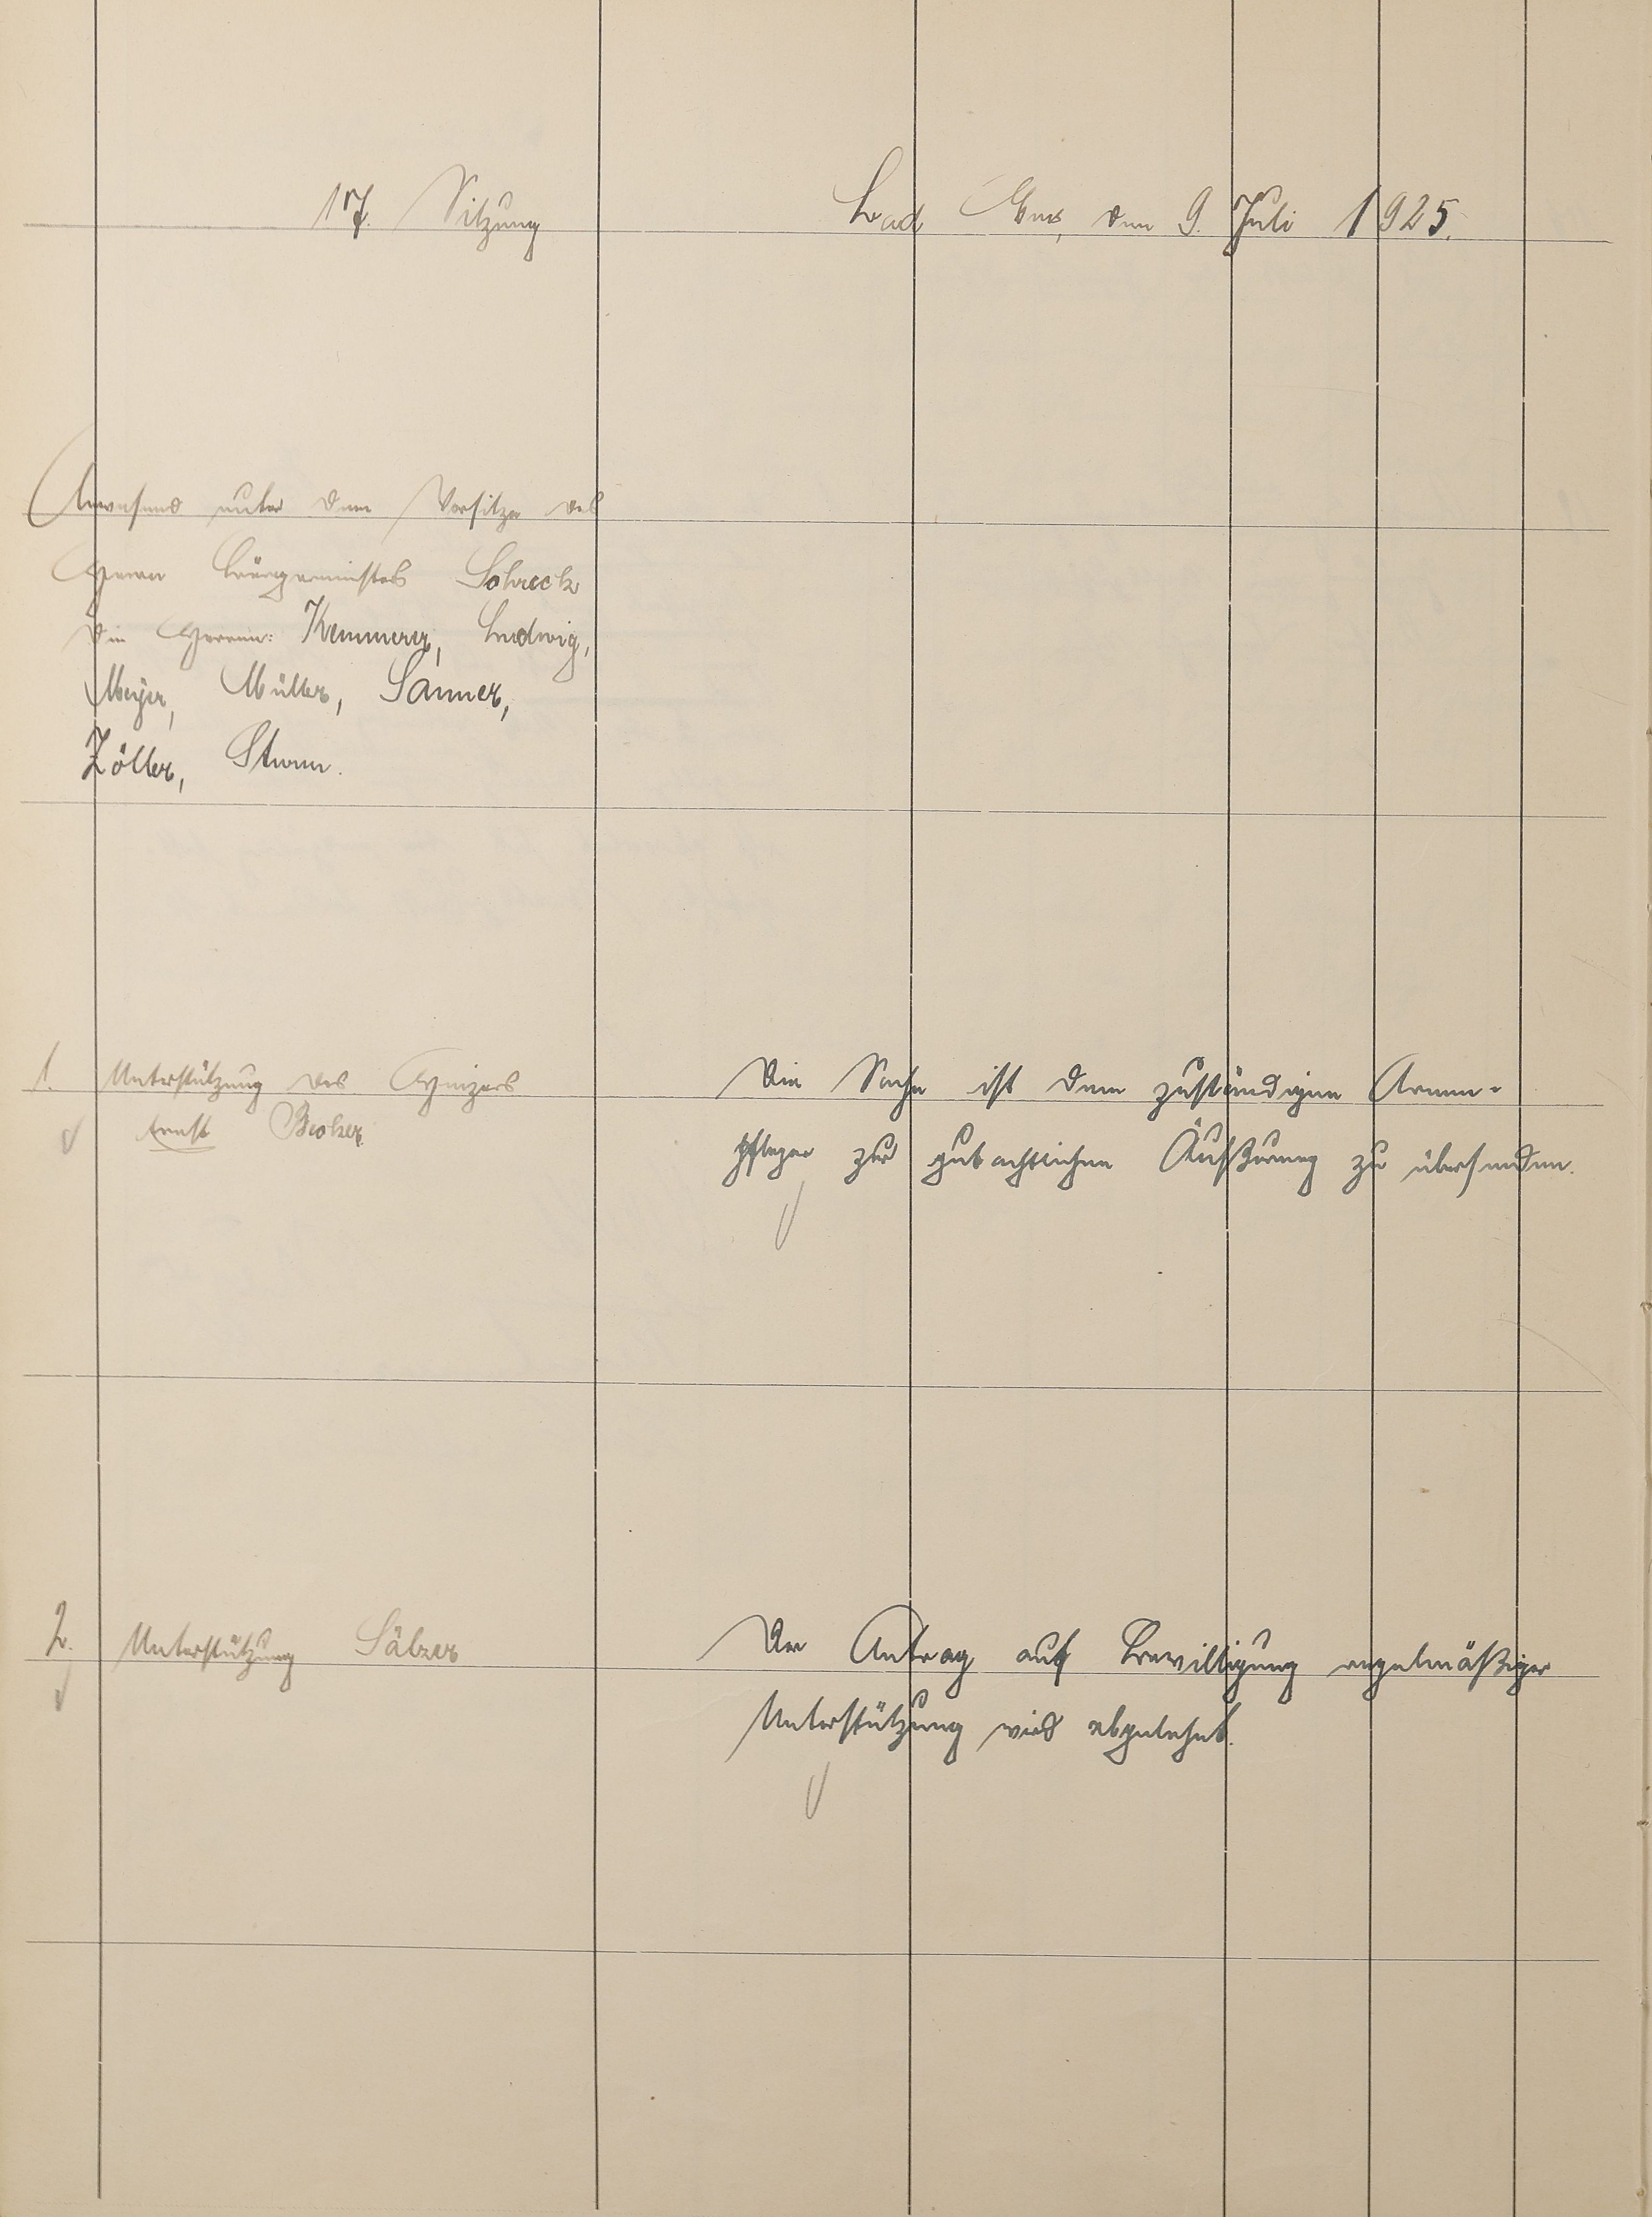 17. Sitzung
Bad Ems, den 9. Juli 1925.
Anwesend unter dem Vorsitze des
Herrn Bürgermeisters Schreck
die Herren: Kemmerer, Ludwig,
Meyer, Müller, Sanner,
Zöller, Sturm.
1. Unterstützung des Heizers
Ernst
Die Sache ist dem zuständigen Armen-
pfleger zur gutachtlichen Äußerung zu übersenden.
2. Unterstützung Sälzer
Der Antrag auf Bewilligung regelmäßiger
Unterstützung wird abgelehnt.